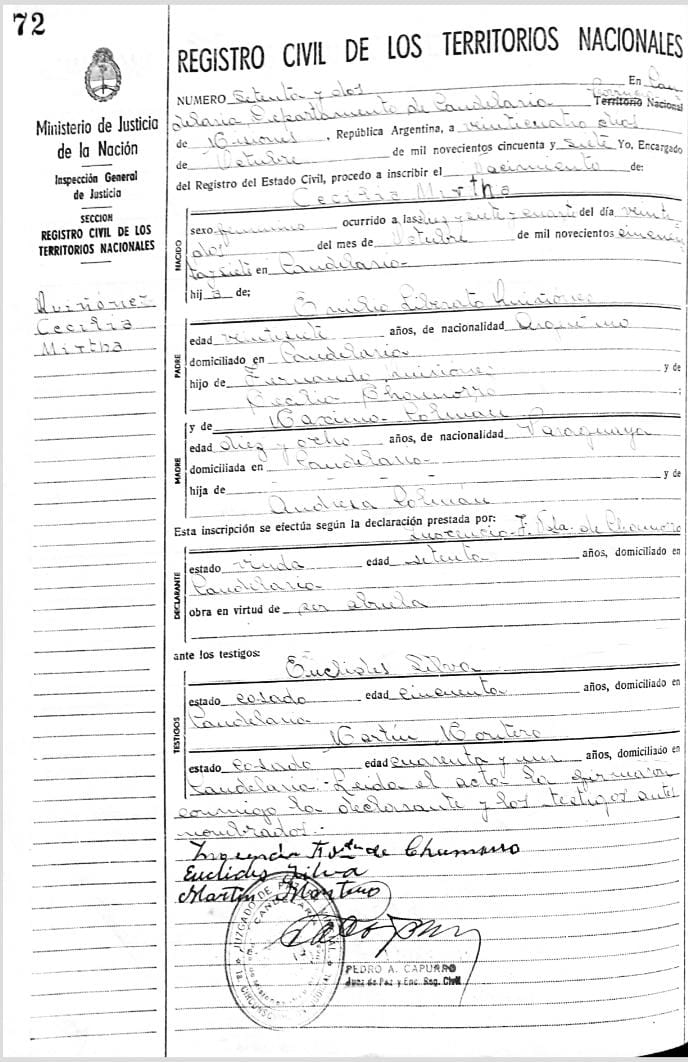 72
Ministerio de Justicia
de la Nación
Inspección General
de Justicia
SECCION
REGISTRO CIVIL DE LOS
TERRITORIOS NACIONALES
Quiñónez
Cecilia
Mirtha
REGISTRO CIVIL DE LOS TERRITORIOS NACIONALES
NUMERO setenta y dos En Can
delaria Departamento de Candelaria Territorio Nacional
de Misiones, República Argentina, a veinticuatro días
de Octubre de mil novecientos cincuenta y siete Yo, Encargado
del Registro del Estado Civil, procedo a inscribir el nacimiento de:
Cecilia Mirtha
NACIDO
sexo femenino ocurrido a las diez y siete y cuarto del día veinte
dos del mes de Octubre de mil novecientos cincuen
ta y siete en Candelaria
hij a de;
Emilio Liberato Quiñónez
PADRE
edad años, de nacionalidad Argentino
domiciliado en Candelaria
hijo de Fernando Quiñónez y de
Cecilia Chamorro ;
y de Máxima Colmán
MADRE
edad diez y ocho años, de nacionalidad Paraguaya
domiciliada en Candelaria
hija de - - - y de
Andresa Colmán
Esta inscripción se efectúa según la declaración prestada por:
F. Vda. de Chamorro
DECLARANTE
estado viuda edad setenta años, domiciliado en
Candelaria
obra en virtud de ser abuela
ante los testigos:
Euclides Silva
TESTIGOS
estado casado edad cincuenta años, domiciliado en
Candelaria
Martín Montero
estado casado edad cuarenta y un años, domiciliado en
Candelaria. Leida el acta la firmaron
conmigo la declarante y los testigos antes
nombrados.
Vda de Chamorro
Euclides Silva
Martin Montero
JUZGADO DE PAZ
CANDELARIA
PEDRO A. CAPURRO
Juez de Paz y Enc. Reg. Civil